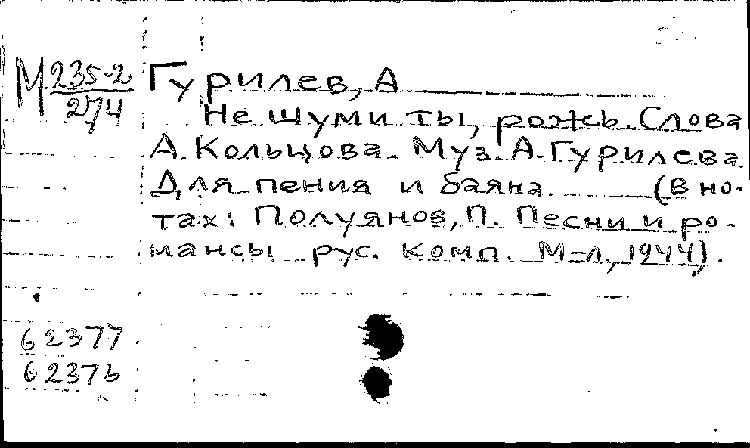 М 235-2/274
Гурилев, А
Не шуми ты, рожь. Слова
А. Кольцова. Муз. А. Гурилева.
Для пения и баяна. (В но-
тах: Полуянов, П. Песни и ро-
мансы рус. комп. М-Л, 1944).
62377
62376